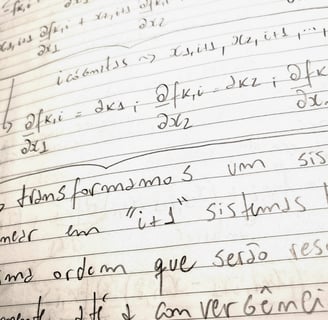 x1,i+1 ∂fk,i + x2,i+1 ∂fk,i
∂x1 ∂x2
icógnitas → x1,i+1, x2,i+1, ...,
∂fk,i = ak1 ; ∂fk,i = ak2 ; ∂fk
∂x1 ∂x2 ∂x
transformamos um sis
near em "i+1" sistemas
ma ordem que serão res
até a convergênci